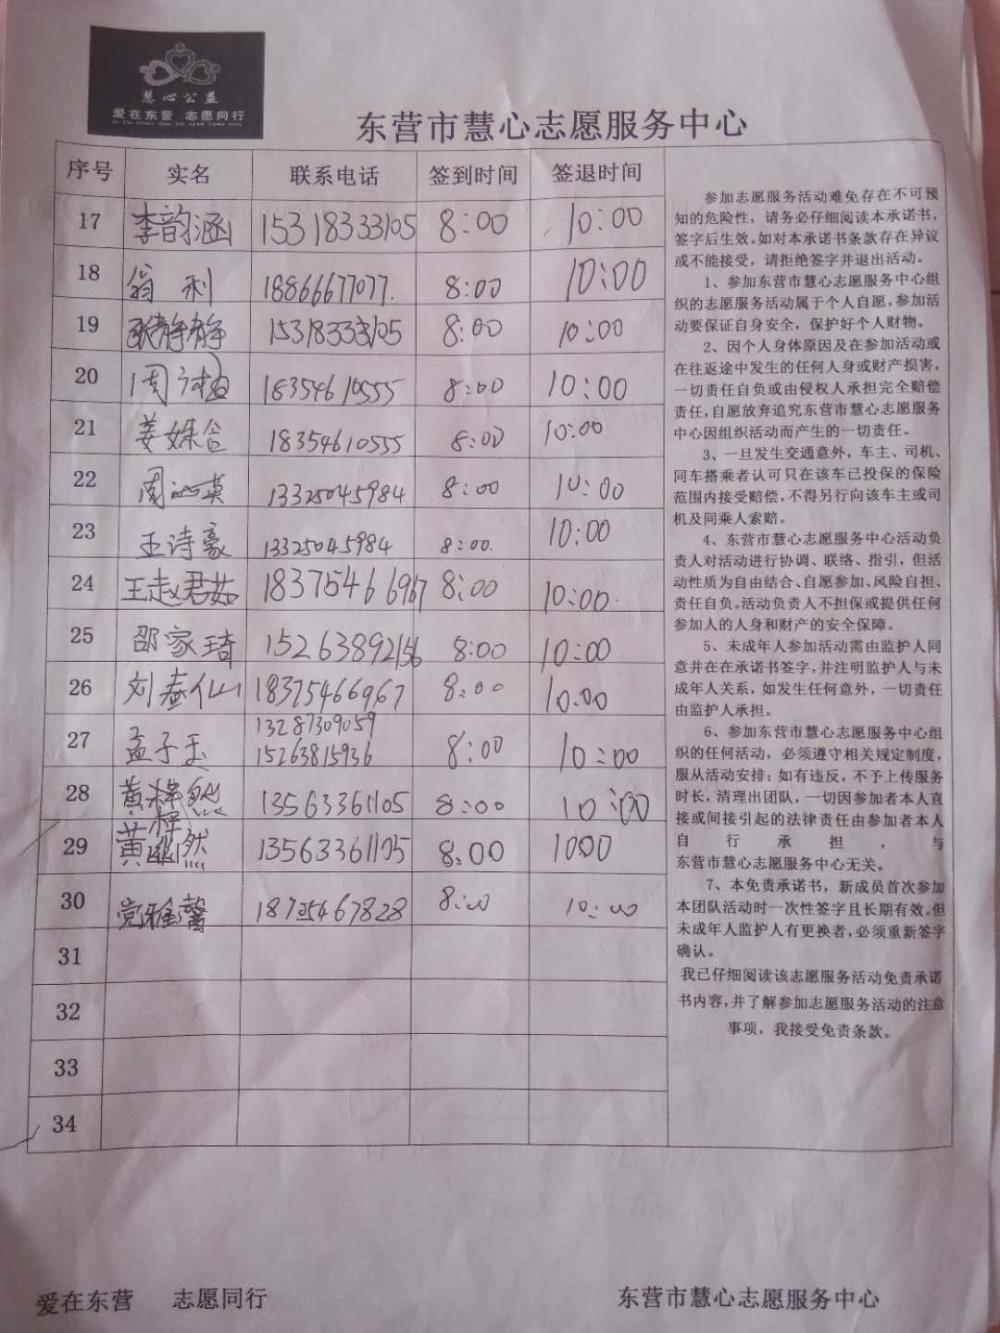 慧心公益
爱在东营 志愿同行
东营市慧心志愿服务中心
序号 实名 联系电话 签到时间 签退时间
17 李韵涵 15318333105 8:00 10:00
18 翁利 18866677077. 8:00 10:00
19 张静静 15318333105 8:00 10:00
20 周 18354610555 8:00 10:00
21 姜 18354610555 8:00 10:00
22 周 13325045984 8:00 10:00
23 王诗豪 13325045984 8:00. 10:00
24 王赵君茹 18375466967 8:00 10:00.
25 邵家琦 15263892156 8:00 10:00
26 刘春仙 18375466967 8:00 10:00
27 孟子玉 13287309059 15263815936 8:00 10:00
28 黄梓然 13563361105 8:00 10:00
29 黄梓然 13563361105 8:00 1000
30 党雅馨 18725467828 8:00 10:00
31
32
33
34
参加志愿服务活动难免存在不可预
知的危险性，请务必仔细阅读本承诺书，
签字后生效。如对本承诺书条款存在异议
或不能接受，请拒绝签字并退出活动。
1、参加东营市慧心志愿服务中心组
织的志愿服务活动属于个人自愿，参加活
动要保证自身安全，保护好个人财物。
2、因个人身体原因及在参加活动或
在往返途中发生的任何人身或财产损害，
一切责任自负或由侵权人承担完全赔偿
责任，自愿放弃追究东营市慧心志愿服务
中心因组织活动而产生的一切责任。
3、一旦发生交通意外，车主、司机、
同车搭乘者认可只在该车已投保的保险
范围内接受赔偿，不得另行向该车主或司
机及同乘人索赔。
4、东营市慧心志愿服务中心活动负
责人对活动进行协调、联络、指引，但活
动性质为自由结合、自愿参加、风险自担、
责任自负。活动负责人不担保或提供任何
参加人的人身和财产的安全保障。
5、未成年人参加活动需由监护人同
意并在在承诺书签字，并注明监护人与未
成年人关系，如发生任何意外，一切责任
由监护人承担。
6、参加东营市慧心志愿服务中心组
织的任何活动，必须遵守相关规定制度，
服从活动安排；如有违反，不予上传服务
时长，清理出团队，一切因参加者本人直
接或间接引起的法律责任由参加者本人
自行承担，与
东营市慧心志愿服务中心无关。
7、本免责承诺书，新成员首次参加
本团队活动时一次性签字且长期有效。但
未成年人监护人有更换者，必须重新签字
确认。
我已仔细阅读该志愿服务活动免责承诺
书内容，并了解参加志愿服务活动的注意
事项，我接受免责条款。
爱在东营 志愿同行
东营市慧心志愿服务中心